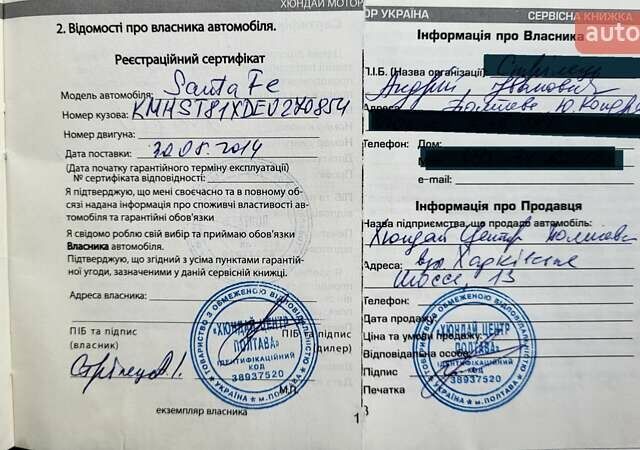 ХЮНДАЙ МОТОР
2. Відомості про власника автомобіля.
Реєстраційний сертифікат
Модель автомобіля: Santa Fe
Номер кузова: KMHST81XDEU270854
Номер двигуна:
Дата поставки: 30.08.2014
(Дата початку гарантійного терміну експлуатації)
№ сертифіката відповідності:
Я підтверджую, що мені своєчасно та в повному об-
сязі надана інформація про споживчі властивості ав-
томобіля та гарантійні обов'язки
Я свідомо роблю свій вибір та приймаю обов'язки
Власника автомобіля.
Підтверджую, що згідний з усіма пунктами гарантій-
ної угоди, зазначеними у даній сервісній книжці.
Адреса власника:
ПІБ та підпис
(власник)
ПІБ та підпис
дилер)
М.П.
ТОВАРИСТВО З ОБМЕЖЕНОЮ ВІДПОВІДАЛЬНІСТЮ
«ХЮНДАЙ ЦЕНТР
ПОЛТАВА»
ІДЕНТИФІКАЦІЙНИЙ
КОД
38937520
УКРАЇНА * м.ПОЛТАВА
екземпляр власника
1
ОР УКРАЇНА
СЕРВІСНА КНИЖКА
auto
Інформація про Власника
П.І.Б. (Назва організації)
Андрій Іванович
Адреса
Телефон: Дом:
e-mail:
Інформація про Продавця
Назва підприємства, що продало автомобіль:
Хюндай Центр Полтава
Адреса: вул. Харківське
шосе, 13
Телефон:
Дата продажу:
Ціна та умови продажу:
Відповідальна особа:
Підпис
Печатка
«ХЮНДАЙ ЦЕНТР
ПОЛТАВА»
ІДЕНТИФІКАЦІЙНИЙ
КОД
38937520
УКРАЇНА * м.ПОЛТАВА